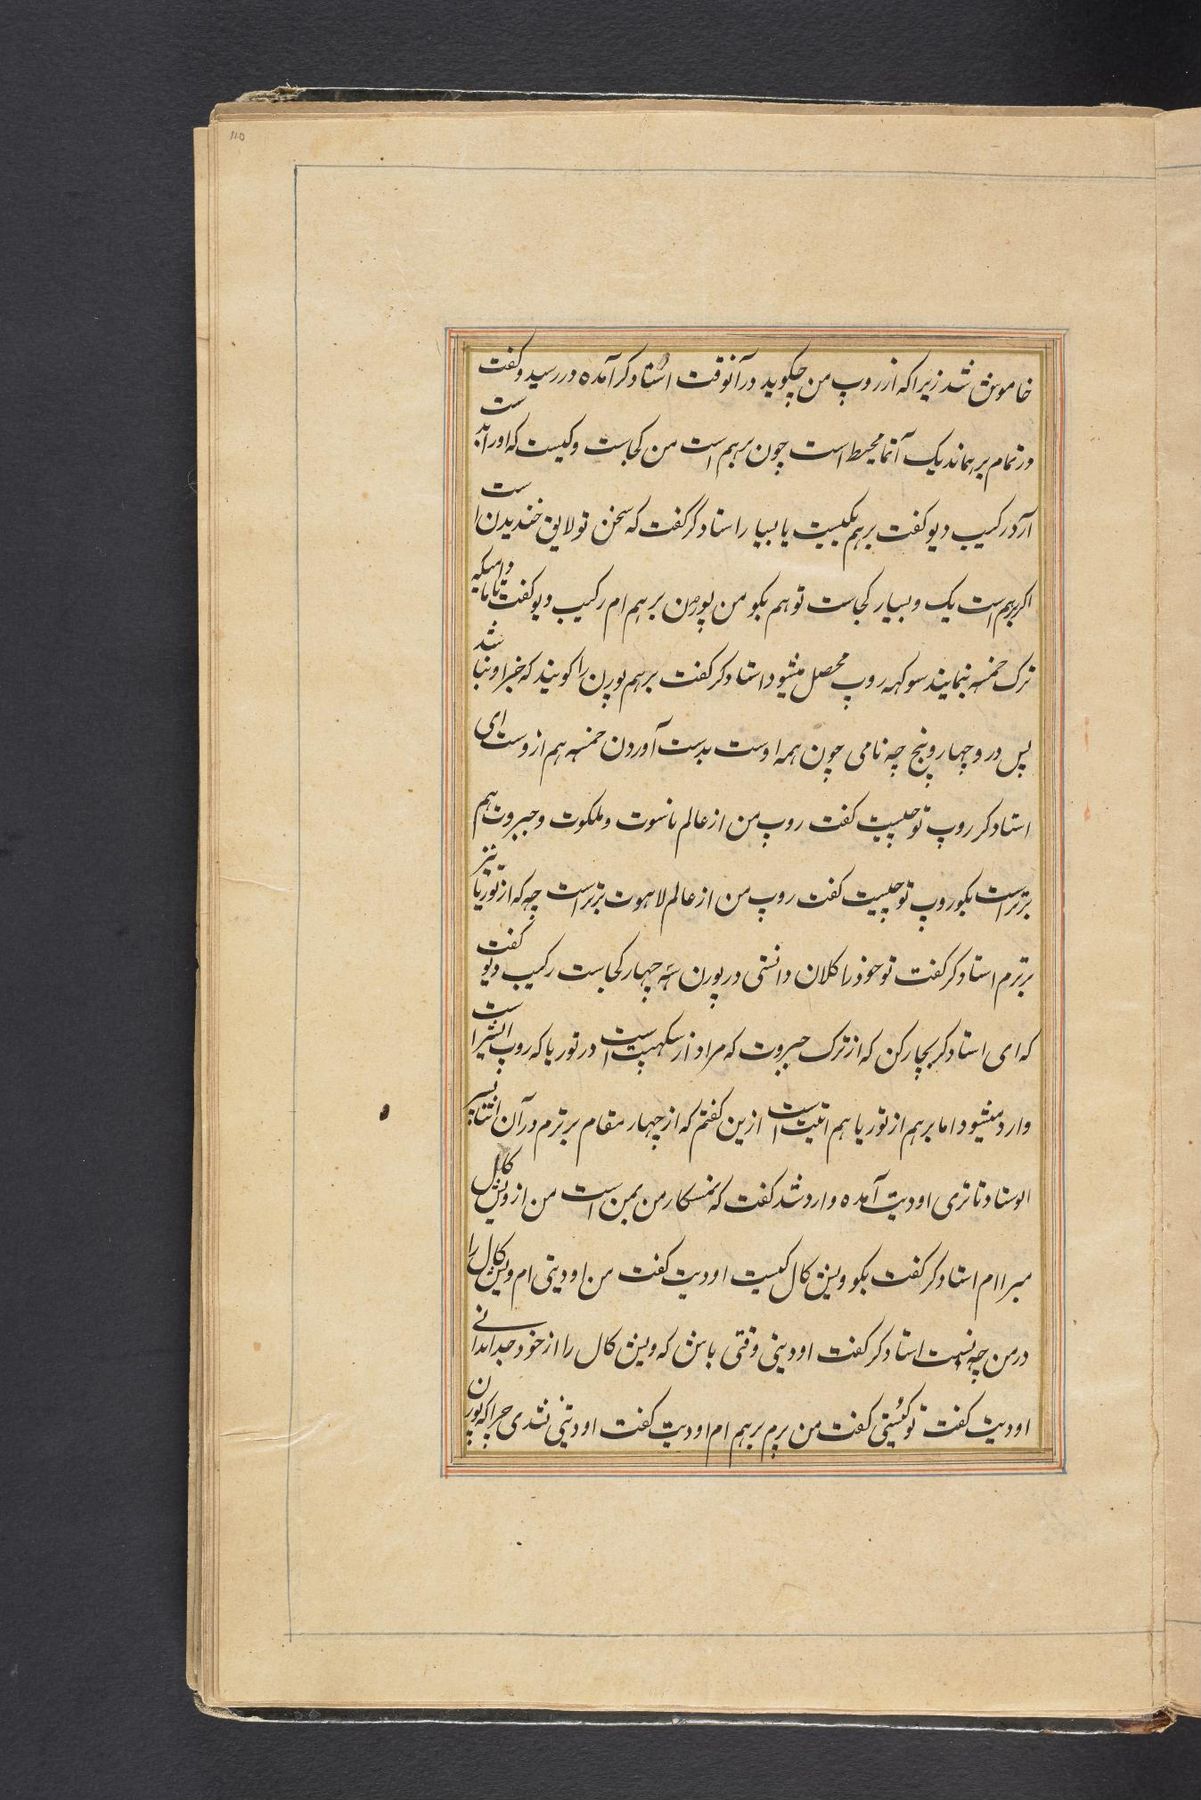 110
خاموش شد زیرا که از روپ من چگوید در آنوقت استاد کر آمده در رسید و کفت
در تمام برهماند یک آتما محیط است چون برهم است من کجاست و کیست که او را بدست
آرد رکهیب دیو کفت برهم یکیست یا بسیار استاد کر گفت که سخن تو لایق خندیدن است
اکر برهم است یک و بسیار کجاست تو هم بکو من پورن برهم ام رکهیب دیو کفت تا مادامیکه
ترک خمسه ننمایند سوکهه روپ محصل میشود استاد کر کفت برهم پورن را کویند که خبر او نباشد
پس در و چهار و پنج چه نامی چون همه اوست بدست آوردن خمسه هم از وست ای
استاد کر روپ تو چیست کفت روپ من از عالم ناسوت و ملکوت و جبروت هم
برتر است بکو روپ تو چیست کفت روپ من از عالم لاهوت برتر است چه که از توریا نیز
برترم استاد کر کفت تو خود را کلان دانستی در پورن سه چهار کجاست رکهیب دیو کفت
که ای استاد کر بچار کن که از ترک جبروت که مراد از سکهپت است در توریا که روپ ایشر است
وارد میشود اما برهم از توریا هم اتیت است ازین کفتم که از چهار مقام برترم در آن اثنا پسر
الوستاد تاتری اودیت آمده وارد شد کفت که نمسکار من بمن است من از ویش کال
مبرا ام استاد کر کفت بکو ویش کال کیست اودیت کفت من اودیتی ام ویش کال را
در من چه نسبت استاد کر کفت اودیتی وقتی باش که ویش کال را از خود جدا ندانی
اودیت کفت تو کیستی کفت من پرم برهم ام اودیت کفت اودیتی نشدی چرا که پورن